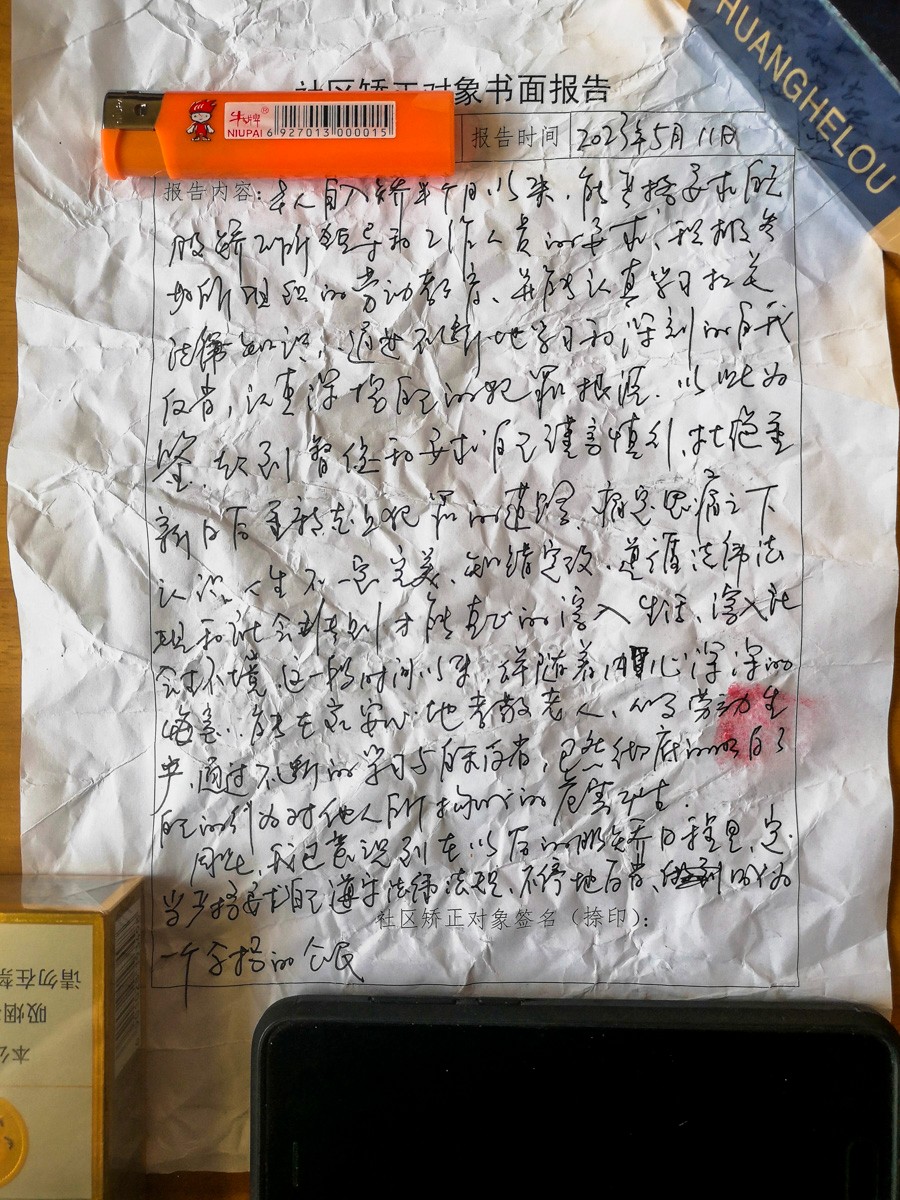 HUANGHELOU
社区矫正对象书面报告
牛牌®
NIUPAI
6 927013 000015
报告时间 2023年5月11日
报告内容：本人自入矫半个月以来，能严格要求自己
服从矫正所领导和工作人员的要求、积极参
加所组织的劳动教育、并能认真学习相关
法律知识，通过不断地学习和深刻的自我
反省，认真深挖自己的犯罪根源，以此为
鉴，起到警醒和要求自己谨言慎行，杜绝重
新日后重新走上犯罪的道路，痛定思痛之下
认识人生不一定完美、知错定改、遵循法律法
规和社会准则才能真正的深入生活、深入社
会环境 这一段时间以来，伴随着内心深深的
悔意，能在家安心地孝敬老人、劳动生
产，通过不断的学习与自我反省，已然彻底的明白了
自己的行为对他人所构成的危害性．
因此，我已意识到在以后的服矫日程里，定
当严格要求自己遵守法律法规，不停地反省、成为
社区矫正对象签名（捺印）：
一个合格的公民
请勿在禁
吸烟
本公